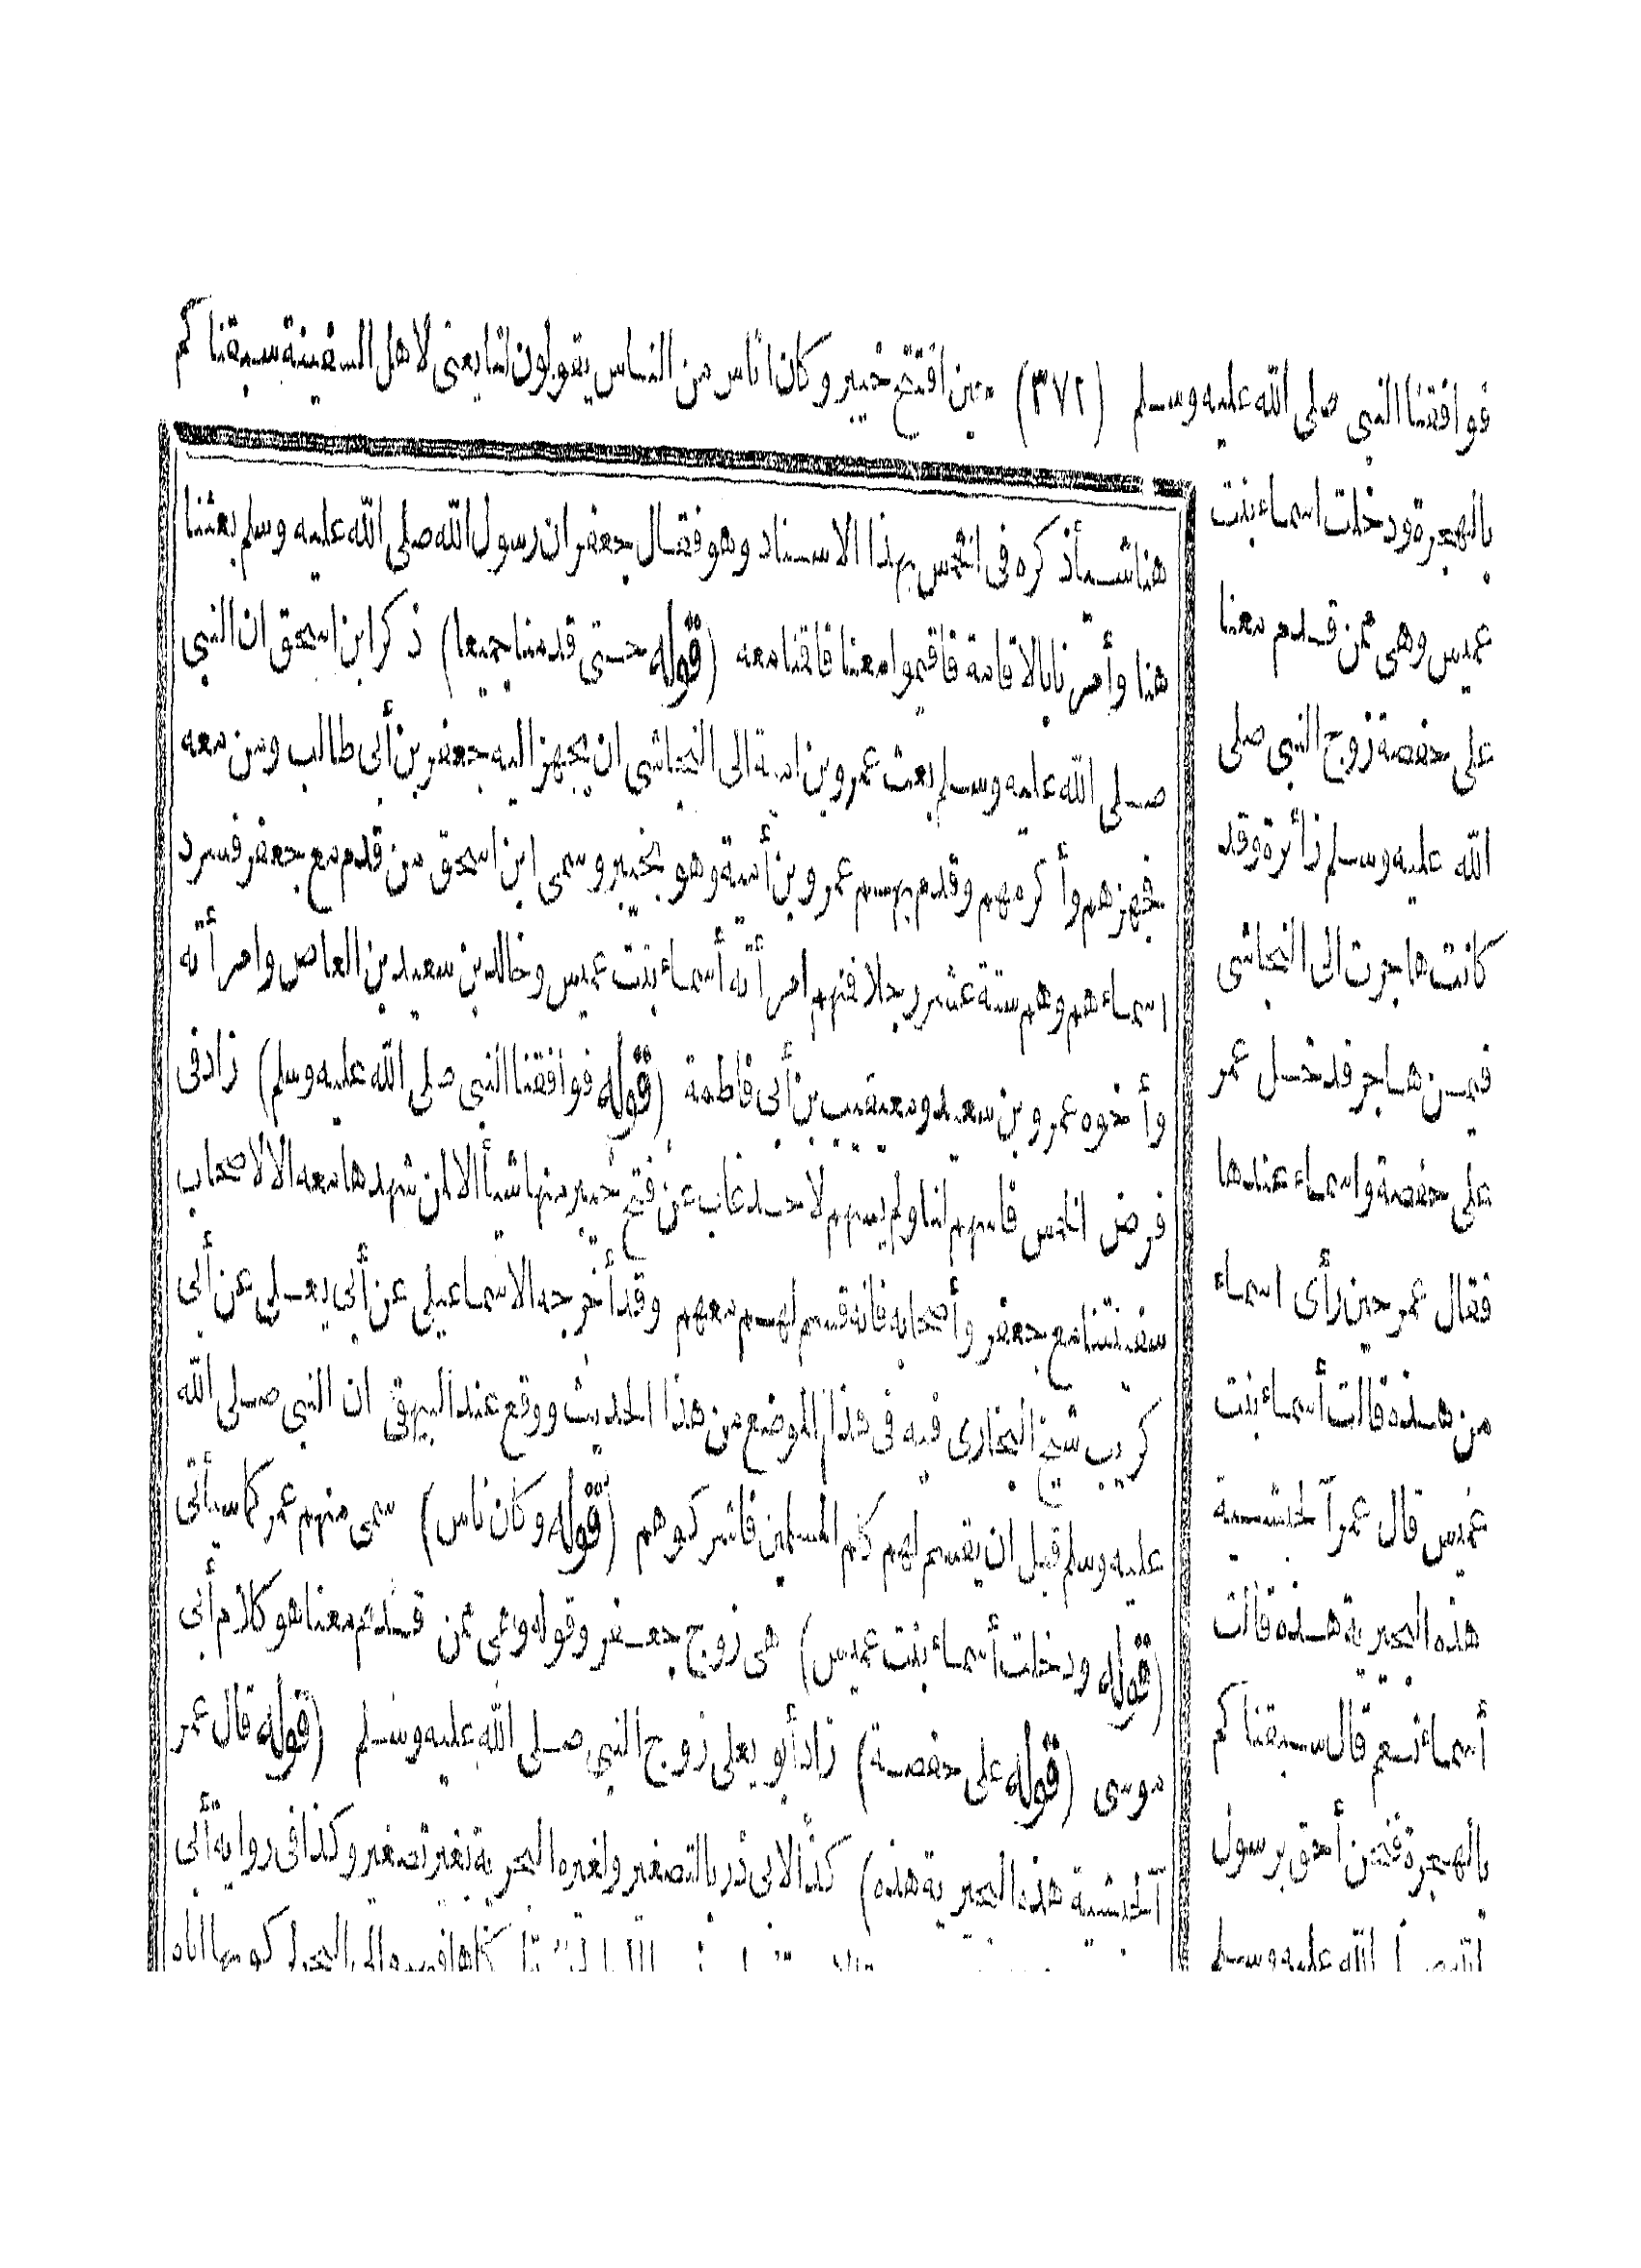 فوافقنا النبي صلى الله عليه وسلم (٣٧٢) حين افتتح خيبر وكان اناس من الناس يقولون لنا يعنى لاهل السفينة سبقناكم
بالهجرة ودخلت اسماء بنت
عميس وهى ممن قدم معنا
على حفصة زوج النبي صلى
الله عليه وسلم زائرة وقد
كانت هاجرت الى النجاشى
فيمن هاجر فدخل عمر
على حفصة واسماء عندها
فقال عمر حين رأى اسماء
من هذه قالت أسماء بنت
عميس قال عمر آلحبشية
هذه البحرية هذه قالت
أسماء نعم قال سبقناكم
بالهجرة فنحن أحق برسول
الله عليه وسلم
هنا شيأذكره فى الخمس بهذا الاسناد وهو فقال جعفر ان رسول الله صلى الله عليه وسلم بعثنا
هنا وأمرنا بالاقامة فاقيموا معنا فاقنا معه (قوله حتى قدمنا جميعا) ذكر ابن اسحق ان النبي
صلى الله عليه وسلم بعث عمرو بن امية الى النجاشى ان يجهز اليه جعفر بن أبى طالب ومن معه
فجهزهم وأكرمهم وقدم بهم عمرو بن أمية وهو بخيبر وسمى ابن اسحق من قدم مع جعفر فسرد
اسماءهم وهم ستة عشر رجلا فنهم امرأته أسماء بنت عميس وخالد بن سعيد بن العاص وامرأته
وأخوه عمرو بن سعيد ومعيقيب بن أبى فاطمة (قوله فوافقنا النبي صلى الله عليه وسلم) زاد فى
فرض الخمس فاسهم لنا ولم يسهم لاحد غاب عن فتح خيبر منها شيأ الا لمن شهدها معه الا لاصحاب
سفينتنا مع جعفر وأصحابه فانه قسم لهم معهم وقد أخرجه الاسماعيلى عن أبى يعلى عن أبى
كريب شيخ البخارى فيه فى هذا الموضع من هذا الحديث ووقع عند البيهقى ان النبي صلى الله
عليه وسلم قبل ان يقسم لهم كلم المسلمين فاشركوهم (قوله وكان ناس) سمى منهم عمر كما سيأتى
(قوله ودخلت أسماء بنت عميس) هى زوج جعفر وقوله وهى ممن قدم معنا هو كلام أبى
موسى (قوله على حفصة) زاد أبو يعلى زوج النبي صلى الله عليه وسلم (قوله قال عمر
آلحبشية هذه البحيرية هذه) كذا لابى ذر بالتصغير ولغيره البحرية بغير تصغير وكذا فى رواية أبى